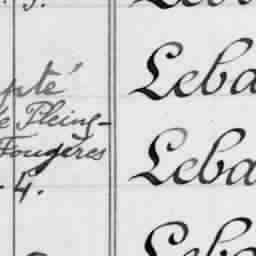 pté
e Pleing-
Fougères
4.
Leba
Leba
Leba